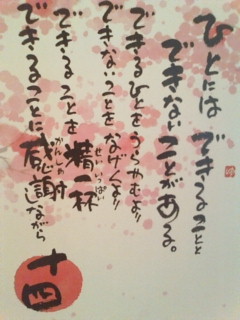 ひとには できることと
できないことがある。
できるひとをうらやむより
できないことをなげくより
できることを精一杯
せいいっぱい
できることに感謝しながら
かんしゃ
十四